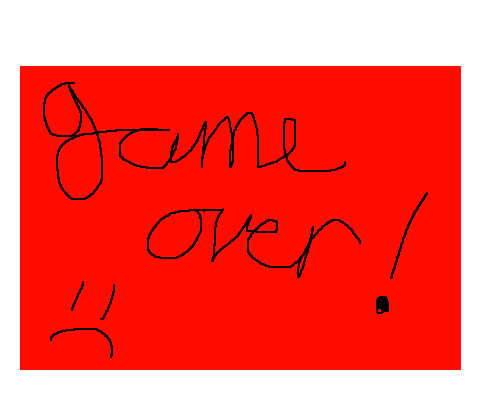 game
over!